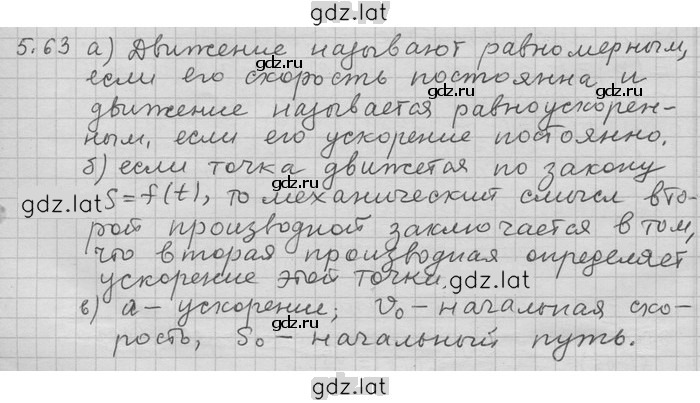 gdz.lat
5.63 а) Движение называют равномерным,
gdz.ru
если его скорость постоянна и
движение называется равноускорен-
gdz.ru
ным, если его ускорение постоянно.
б) если точка движется по закону
gdz.lat S=f(t), то механический смысл вто-
gdz.ru
рой производной заключается в том,
что вторая производная определяет
ускорение этой точки. gdz.lat
в) a – ускорение; v₀ – начальная ско-
gdz.ru
рость, S₀ – начальный путь.
gdz.lat